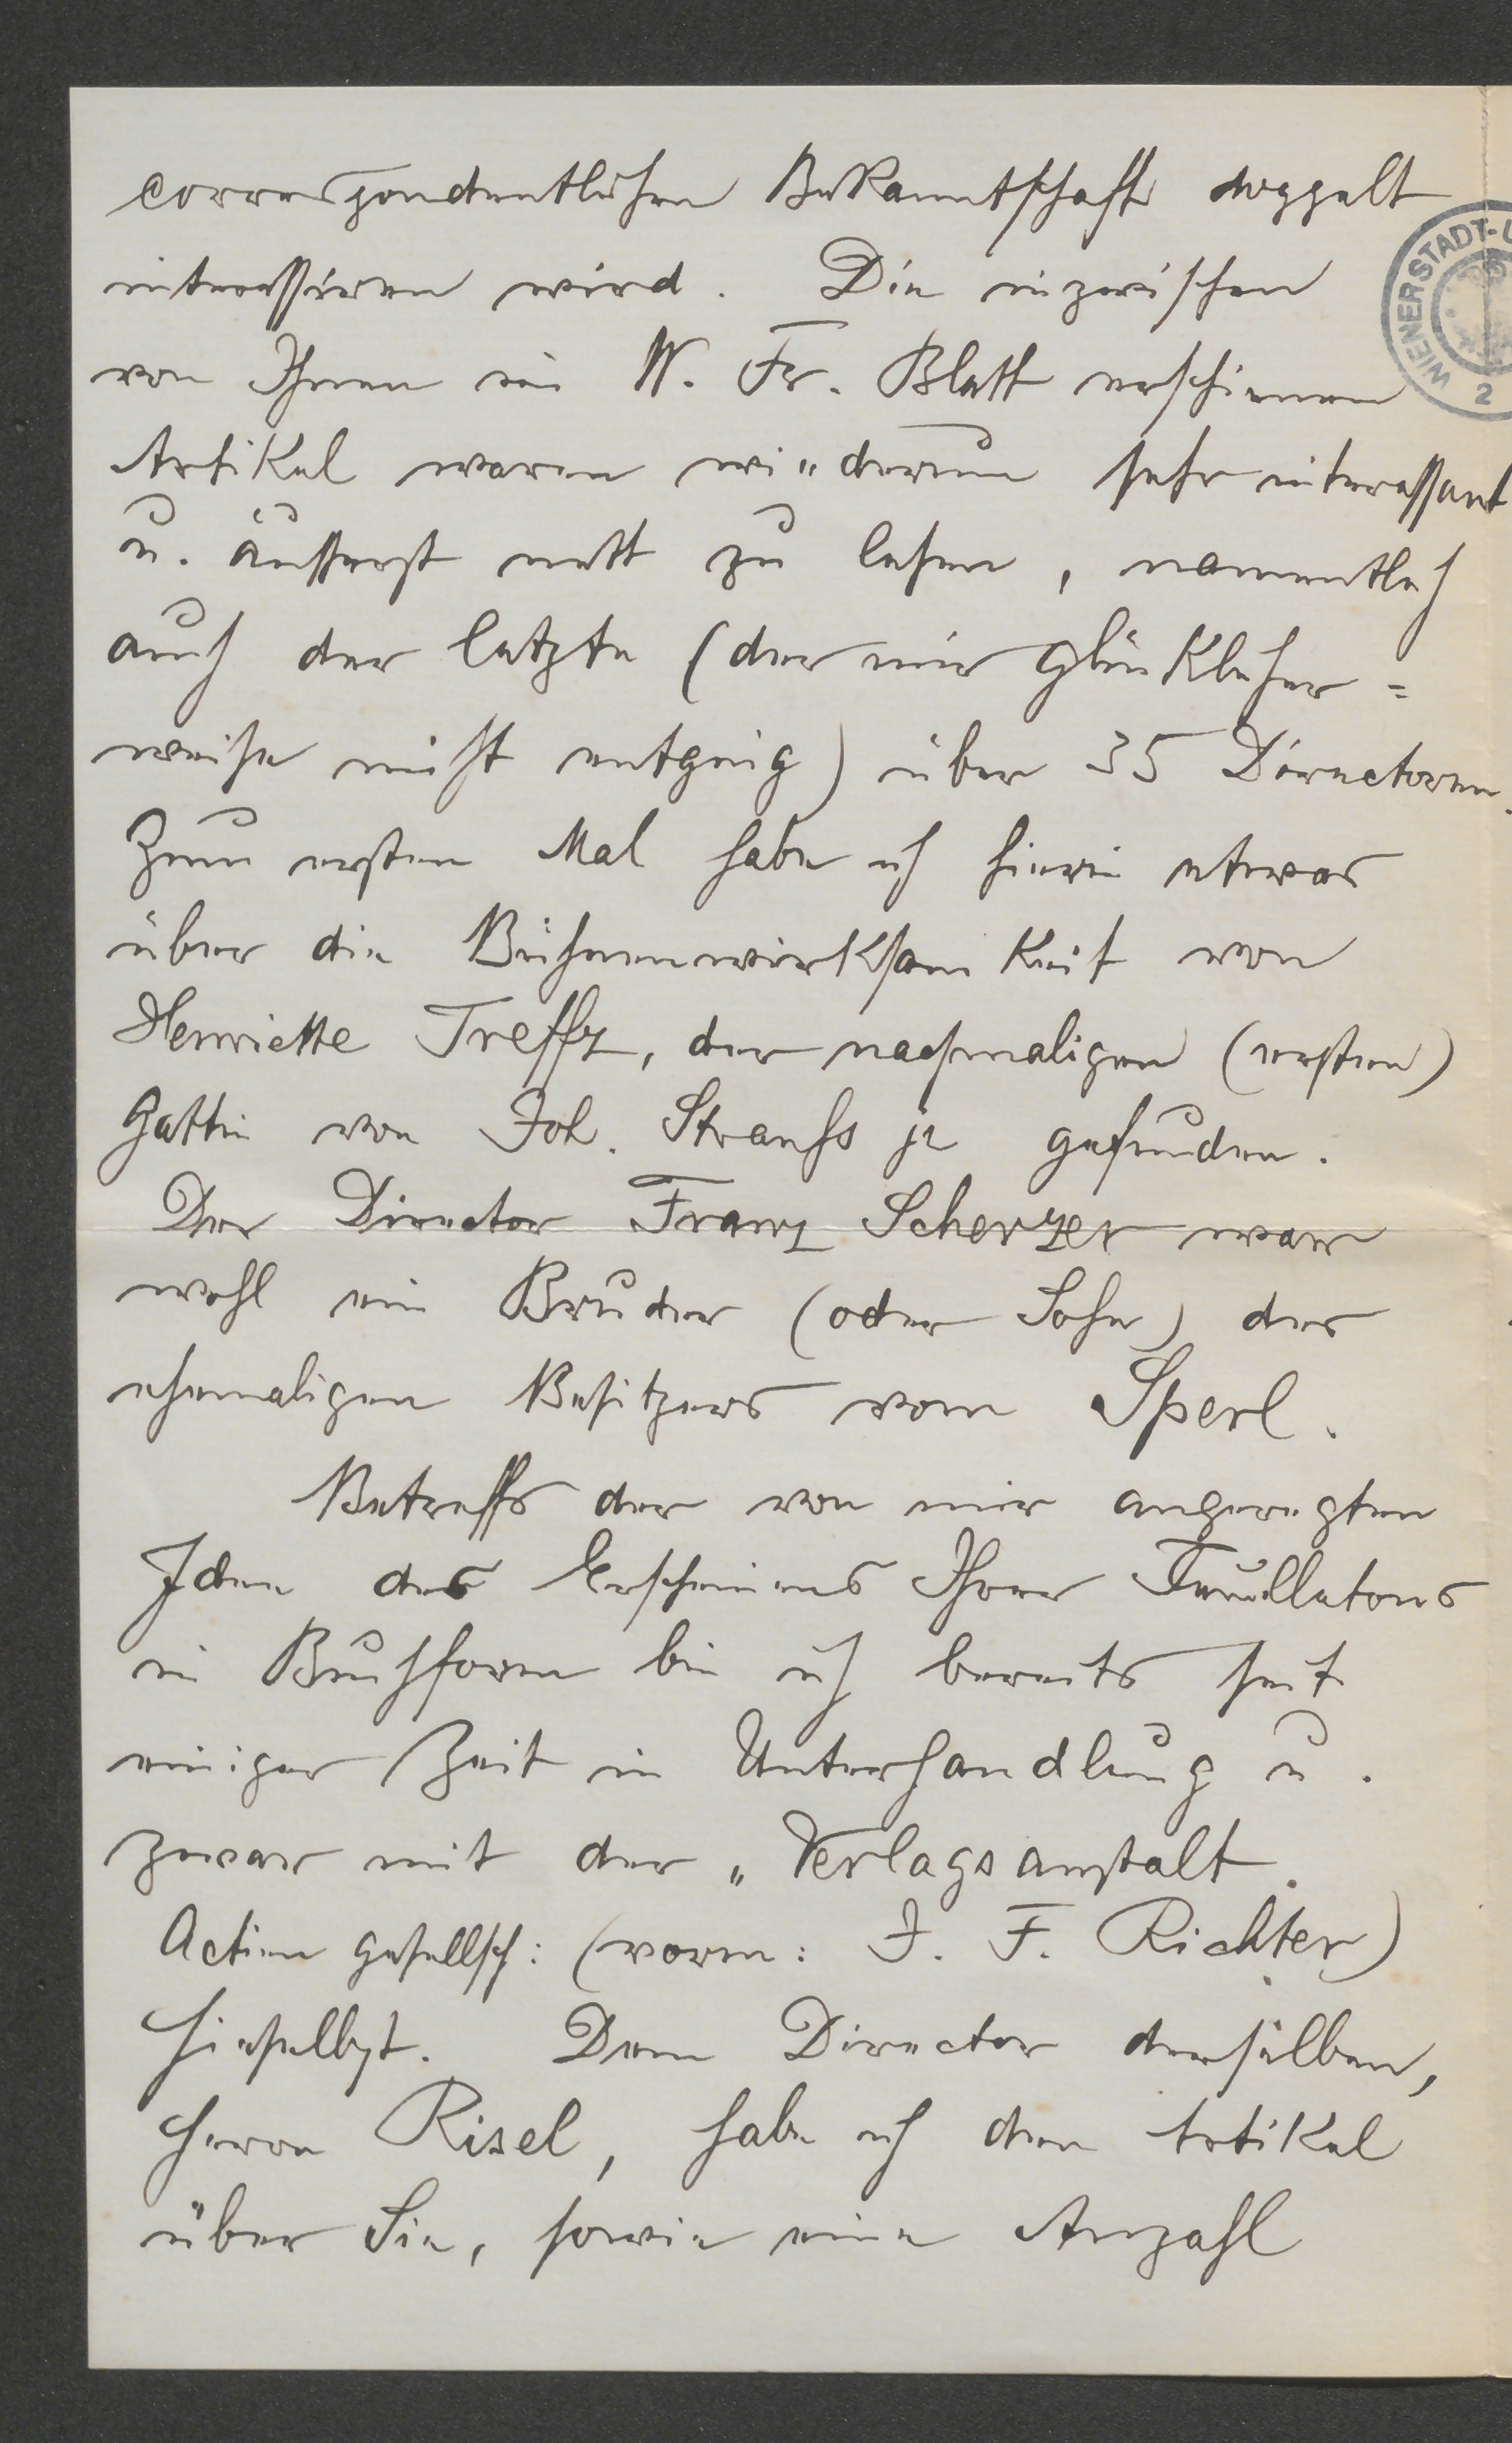 correspondentlichen Bekanntschaft doppelt
interessiren wird. Die inzwischen
von Ihnen im N. Fr. Blatt erschienen
Artikel waren wiederum sehr interessant
u. äusserst nett zu lesen, namentlich
auch der letzte (der mir glücklicher=
weise nicht entging) über 35 Directoren.
Zum ersten Mal habe ich hierin etwas
über die Bühnenwirksamkeit von
Henriette Treffz, der nachmaligen (ersten)
Gattin von Joh. Strauß jr gefunden.
Der Director Franz Scherzer war
wohl ein Bruder (oder Sohn) des
ehemaligen Besitzers vom Sperl.
Betreffs der von mir angeregten
Idee des Erscheinens Ihrer Feuilletons
in Buchform bin ich bereits seit
einiger Zeit in Unterhandlung u.
zwar mit der „Verlagsanstalt
Actien gesellsch: (vorm: J. F. Richter)
hieselbst. Dem Director derselben,
Herrn Risel, habe ich den Artikel
über Sie, sowie eine Anzahl
WIENER STADT-
2